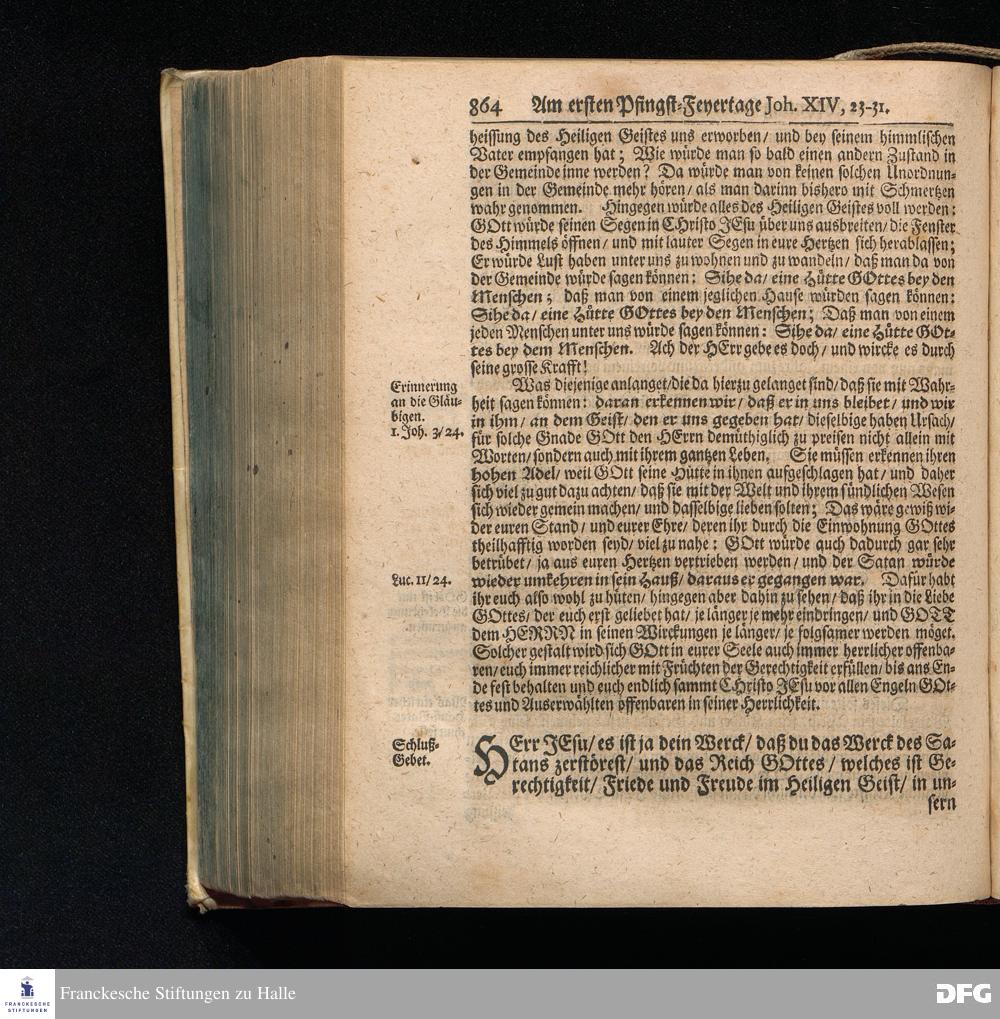 864 Am ersten Pfingst-Feyertage Joh. XIV, 23-31.
heissung des Heiligen Geistes uns erworben/ und bey seinem himmlischen
Vater empfangen hat; Wie würde man so bald einen andern Zustand in
der Gemeinde inne werden? Da würde man von keinen solchen Unordnun-
gen in der Gemeinde mehr hören/ als man darinn bishero mit Schmertzen
wahr genommen. Hingegen würde alles des Heiligen Geistes voll werden:
GOtt würde seinen Segen in CHristo JEsu über uns ausbreiten/ die Fenster
des Himmels öffnen/ und mit lauter Segen in eure Hertzen sich herablassen;
Er würde Lust haben unter uns zu wohnen und zu wandeln/ daß man da von
der Gemeinde würde sagen können: Sihe da/ eine Hütte GOttes bey den
Menschen; daß man von einem jeglichen Hause würden sagen können:
Sihe da/ eine Hütte GOttes bey den Menschen; Daß man von einem
jeden Menschen unter uns würde sagen können: Sihe da/ eine Hütte GOt-
tes bey dem Menschen. Ach der HErr gebe es doch/ und wircke es durch
seine grosse Krafft!
Erinnerung
an die Gläu-
bigen.
1. Joh. 3/24.
Was diejenige anlanget/ die da hierzu gelanget sind/ daß sie mit Wahr-
heit sagen können: daran erkennen wir/ daß er in uns bleibet/ und wir
in ihm/ an dem Geist/ den er uns gegeben hat/ dieselbige haben Ursach/
für solche Gnade GOtt den HErrn demüthiglich zu preisen nicht allein mit
Worten/ sondern auch mit ihrem gantzen Leben. Sie müssen erkennen ihren
hohen Adel/ weil GOtt seine Hütte in ihnen aufgeschlagen hat/ und daher
sich viel zu gut dazu achten/ daß sie mit der Welt und ihrem sündlichen Wesen
sich wieder gemein machen/ und dasselbige lieben solten; Das wäre gewiß wi-
der euren Stand/ und eurer Ehre/ deren ihr durch die Einwohnung GOttes
theilhafftig worden seyd/ viel zu nahe: GOtt würde auch dadurch gar sehr
betrübet/ ja aus euren Hertzen vertrieben werden/ und der Satan würde
Luc. 11/24.
wieder umkehren in sein Hauß/ daraus er gegangen war. Dafür habt
ihr euch also wohl zu hüten/ hingegen aber dahin zu sehen/ daß ihr in die Liebe
GOttes/ der euch erst geliebet hat/ je länger je mehr eindringen/ und GOTT
dem HERRN in seinen Wirckungen je länger/ je folgsamer werden möget.
Solcher gestalt wird sich GOtt in eurer Seele auch immer herrlicher offenba-
ren/ euch immer reichlicher mit Früchten der Gerechtigkeit erfüllen/ bis ans En-
de fest behalten und euch endlich sammt CHristo JEsu vor allen Engeln GOt-
tes und Auserwählten offenbaren in seiner Herrlichkeit.
Schluß-
Gebet.
HErr JEsu/ es ist ja dein Werck/ daß du das Werck des Sa-
tans zerstörest/ und das Reich GOttes/ welches ist Ge-
rechtigkeit/ Friede und Freude im Heiligen Geist/ in un-
sern
FRANCKESCHE
STIFTUNGEN
Franckesche Stiftungen zu Halle
DFG